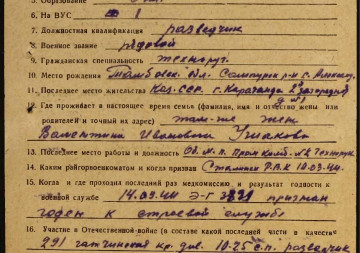 5. Образование
6. На ВУС № 1
7. Должностная квалификация разведчик
8. Военное звание рядовой
9. Гражданская специальность технорук.
10. Место рождения Тамбовск. обл. Сампурск р-н с.
11. Последнее место жительства Каз. ССР. г. Караганда 2
12. Где проживает в настоящее время семья (фамилия, имя и отчество жены или
родителей и точный их адрес) там-же жена
Валентина Ивановна
13. Последнее место работы и должность Пром Комб. №2 Технорук
14. Каким райгорвоенкоматом и когда призван Сталинск Р.В.К 10.03.44
15. Когда и где проходил последний раз медкомиссию и результат годности к
военной службе 14.09.44 Э-Г признан
годен к строевой службе
16. Участие в Отечественной войне (в составе какой последней части и в качестве
291 гатчинская кр. див. 1025 с.п. разведчик